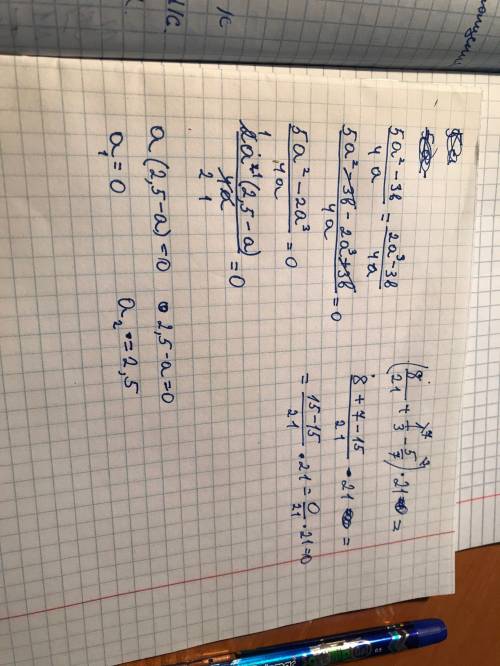 (5a² - 3b)/4a = (2a³ - 3b)/4a
(5a² - 3b - 2a³ + 3b)/4a = 0
(5a² - 2a³)/4a = 0
2a²(2,5 - a)/4a = 0
1
2 1
a(2,5 - a) = 0 2,5 - a = 0
a₁ = 0 a₂ = 2,5
(8/21 + 1/3 - 5/7) · 21 =
(8 + 7 - 15)/21 · 21 =
= (15 - 15)/21 · 21 = 0/21 · 21 = 0